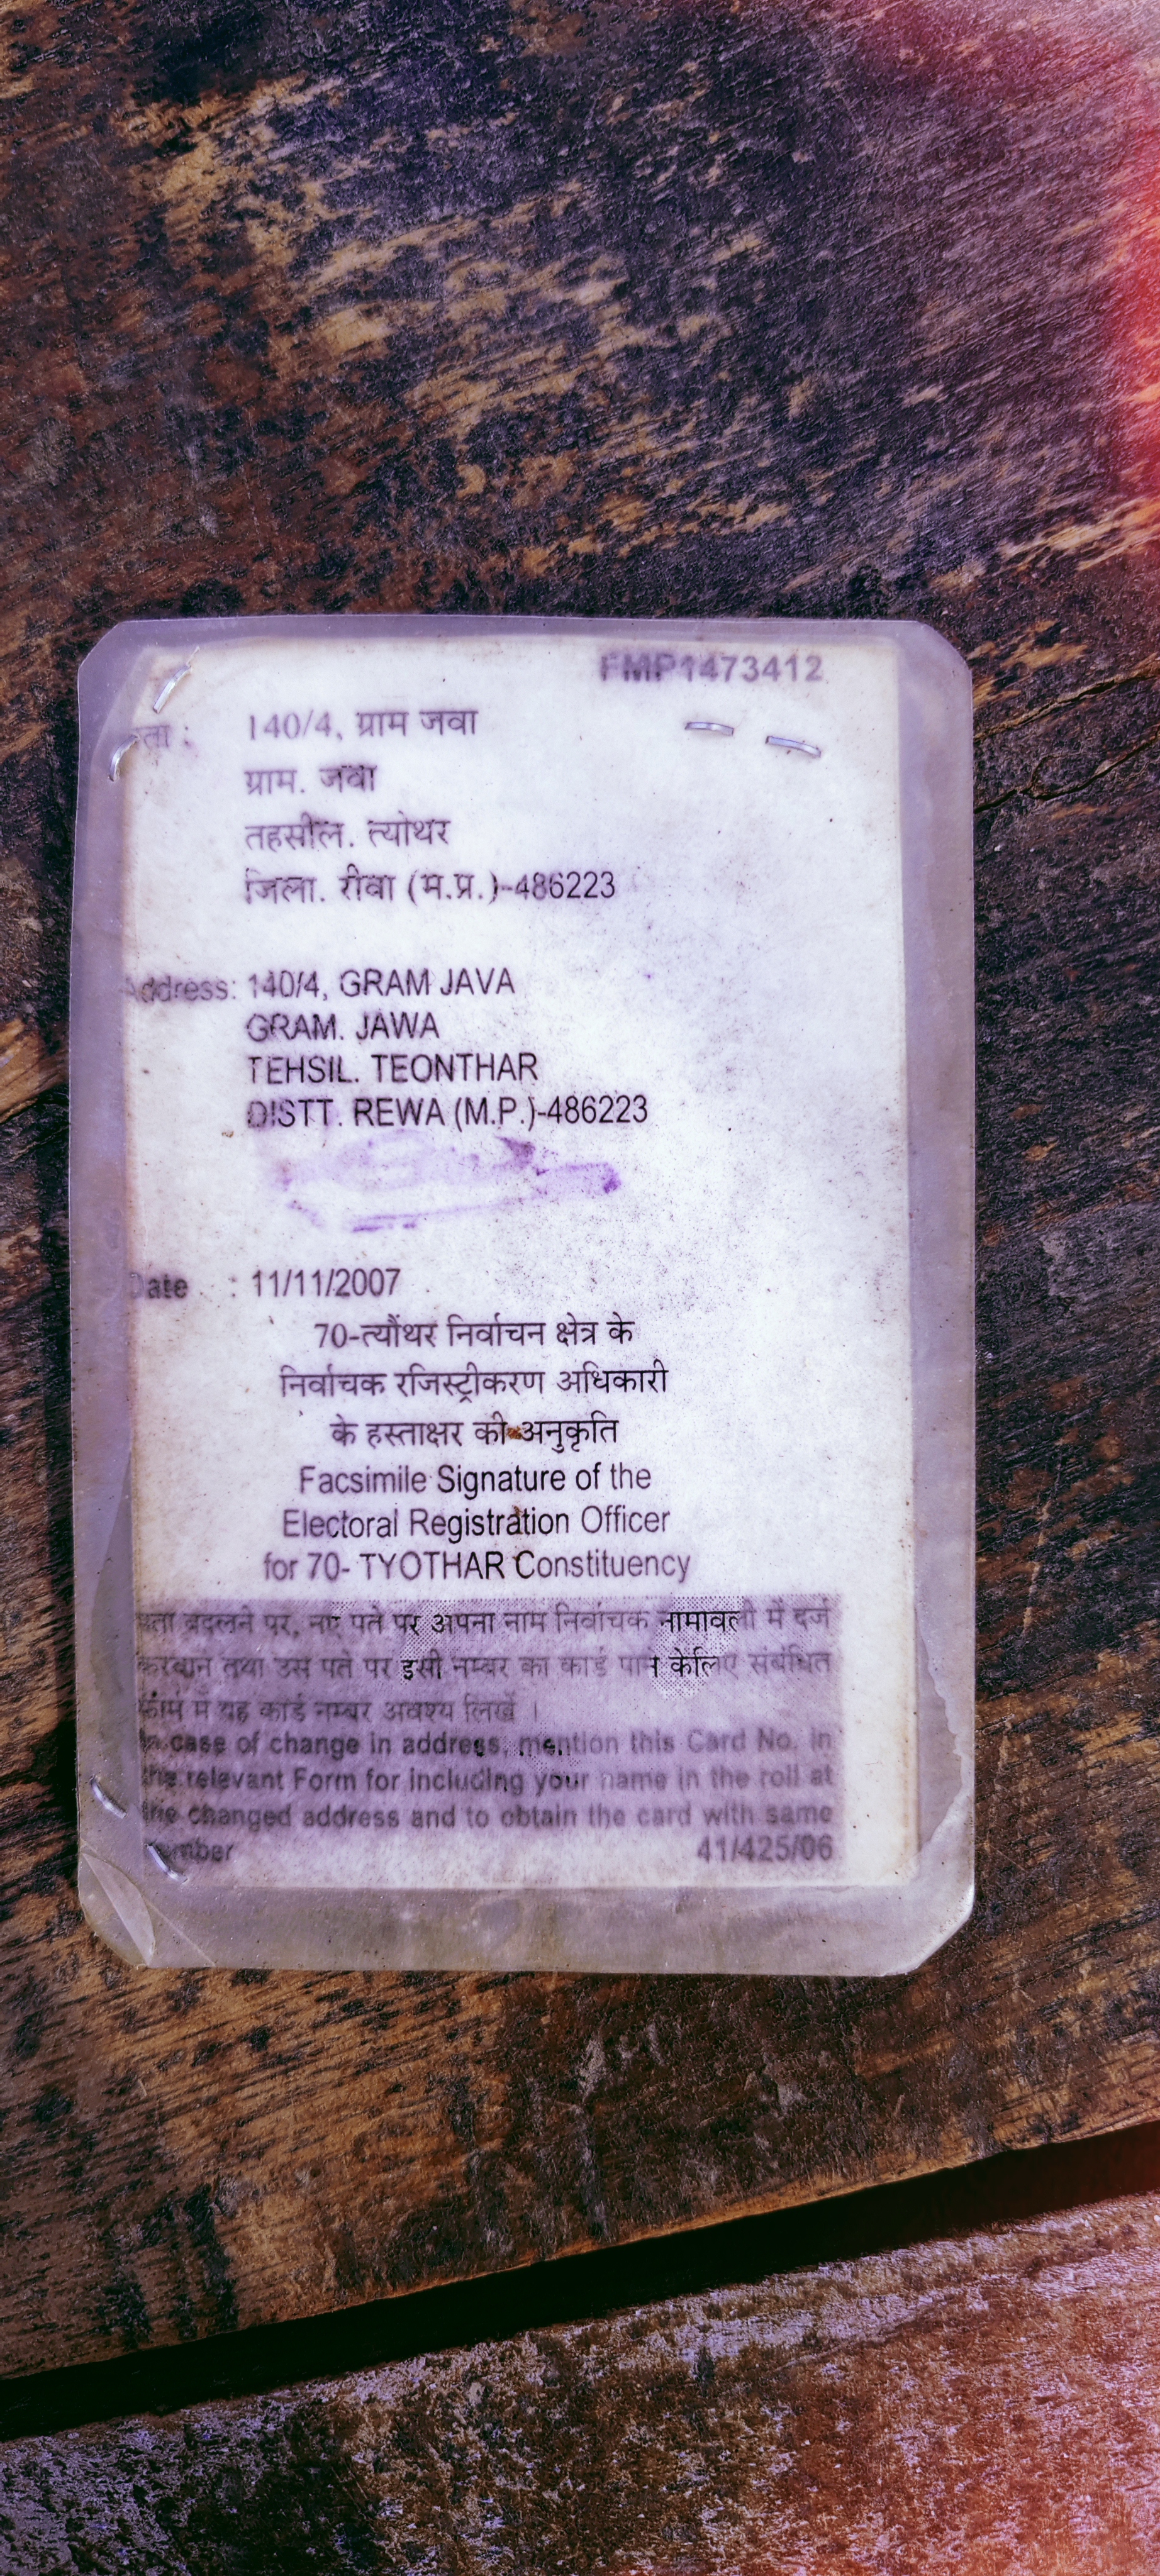 FMP1473412
पता : 140/4, ग्राम जवा
ग्राम. जवा
तहसील. त्योथर
जिला. रीवा (म.प्र.)-486223
Address: 140/4, GRAM JAVA
GRAM. JAWA
TEHSIL. TEONTHAR
DISTT. REWA (M.P.)-486223
Date : 11/11/2007
70-त्यौंथर निर्वाचन क्षेत्र के
निर्वाचक रजिस्ट्रीकरण अधिकारी
के हस्ताक्षर की अनुकृति
Facsimile Signature of the
Electoral Registration Officer
for 70- TYOTHAR Constituency
पता बदलने पर, नए पते पर अपना नाम निर्वाचक नामावली में दर्ज
करवाने तथा उस पते पर इसी नम्बर का कार्ड पाने केलिए संबंधित
फ़ॉर्म में यह कार्ड नम्बर अवश्य लिखें ।
In case of change in address, mention this Card No. in
the relevant Form for including your name in the roll at
the changed address and to obtain the card with same
number 41/425/06